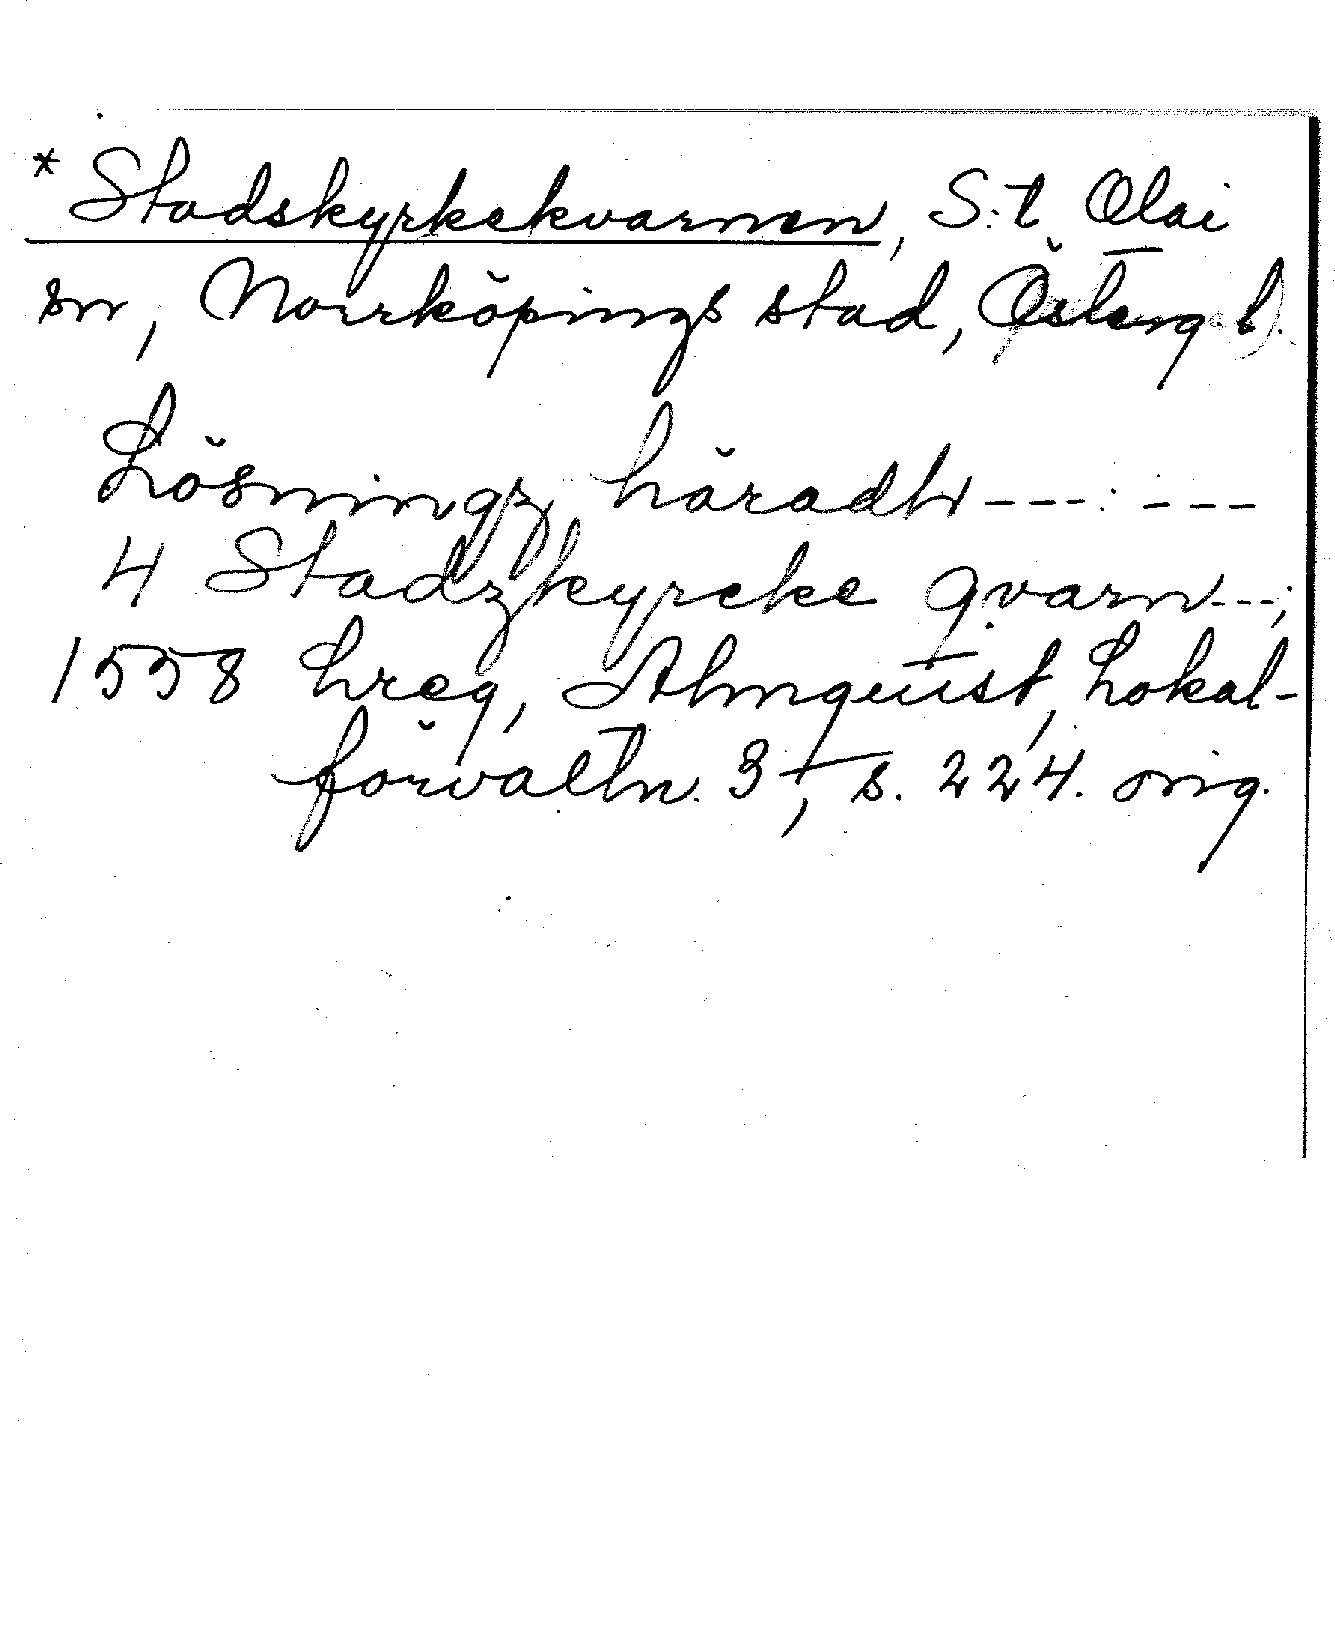 * Stadskyrkekvarnen, S:t Olai
sn, Norrköpings stad, Österg l.
Lösningz häradh --- : ---
4 Stadzkyrcke qvarn ---;
1558 Lreg, Almquist, Lokal-
förvaltn. 3, s. 224. orig.